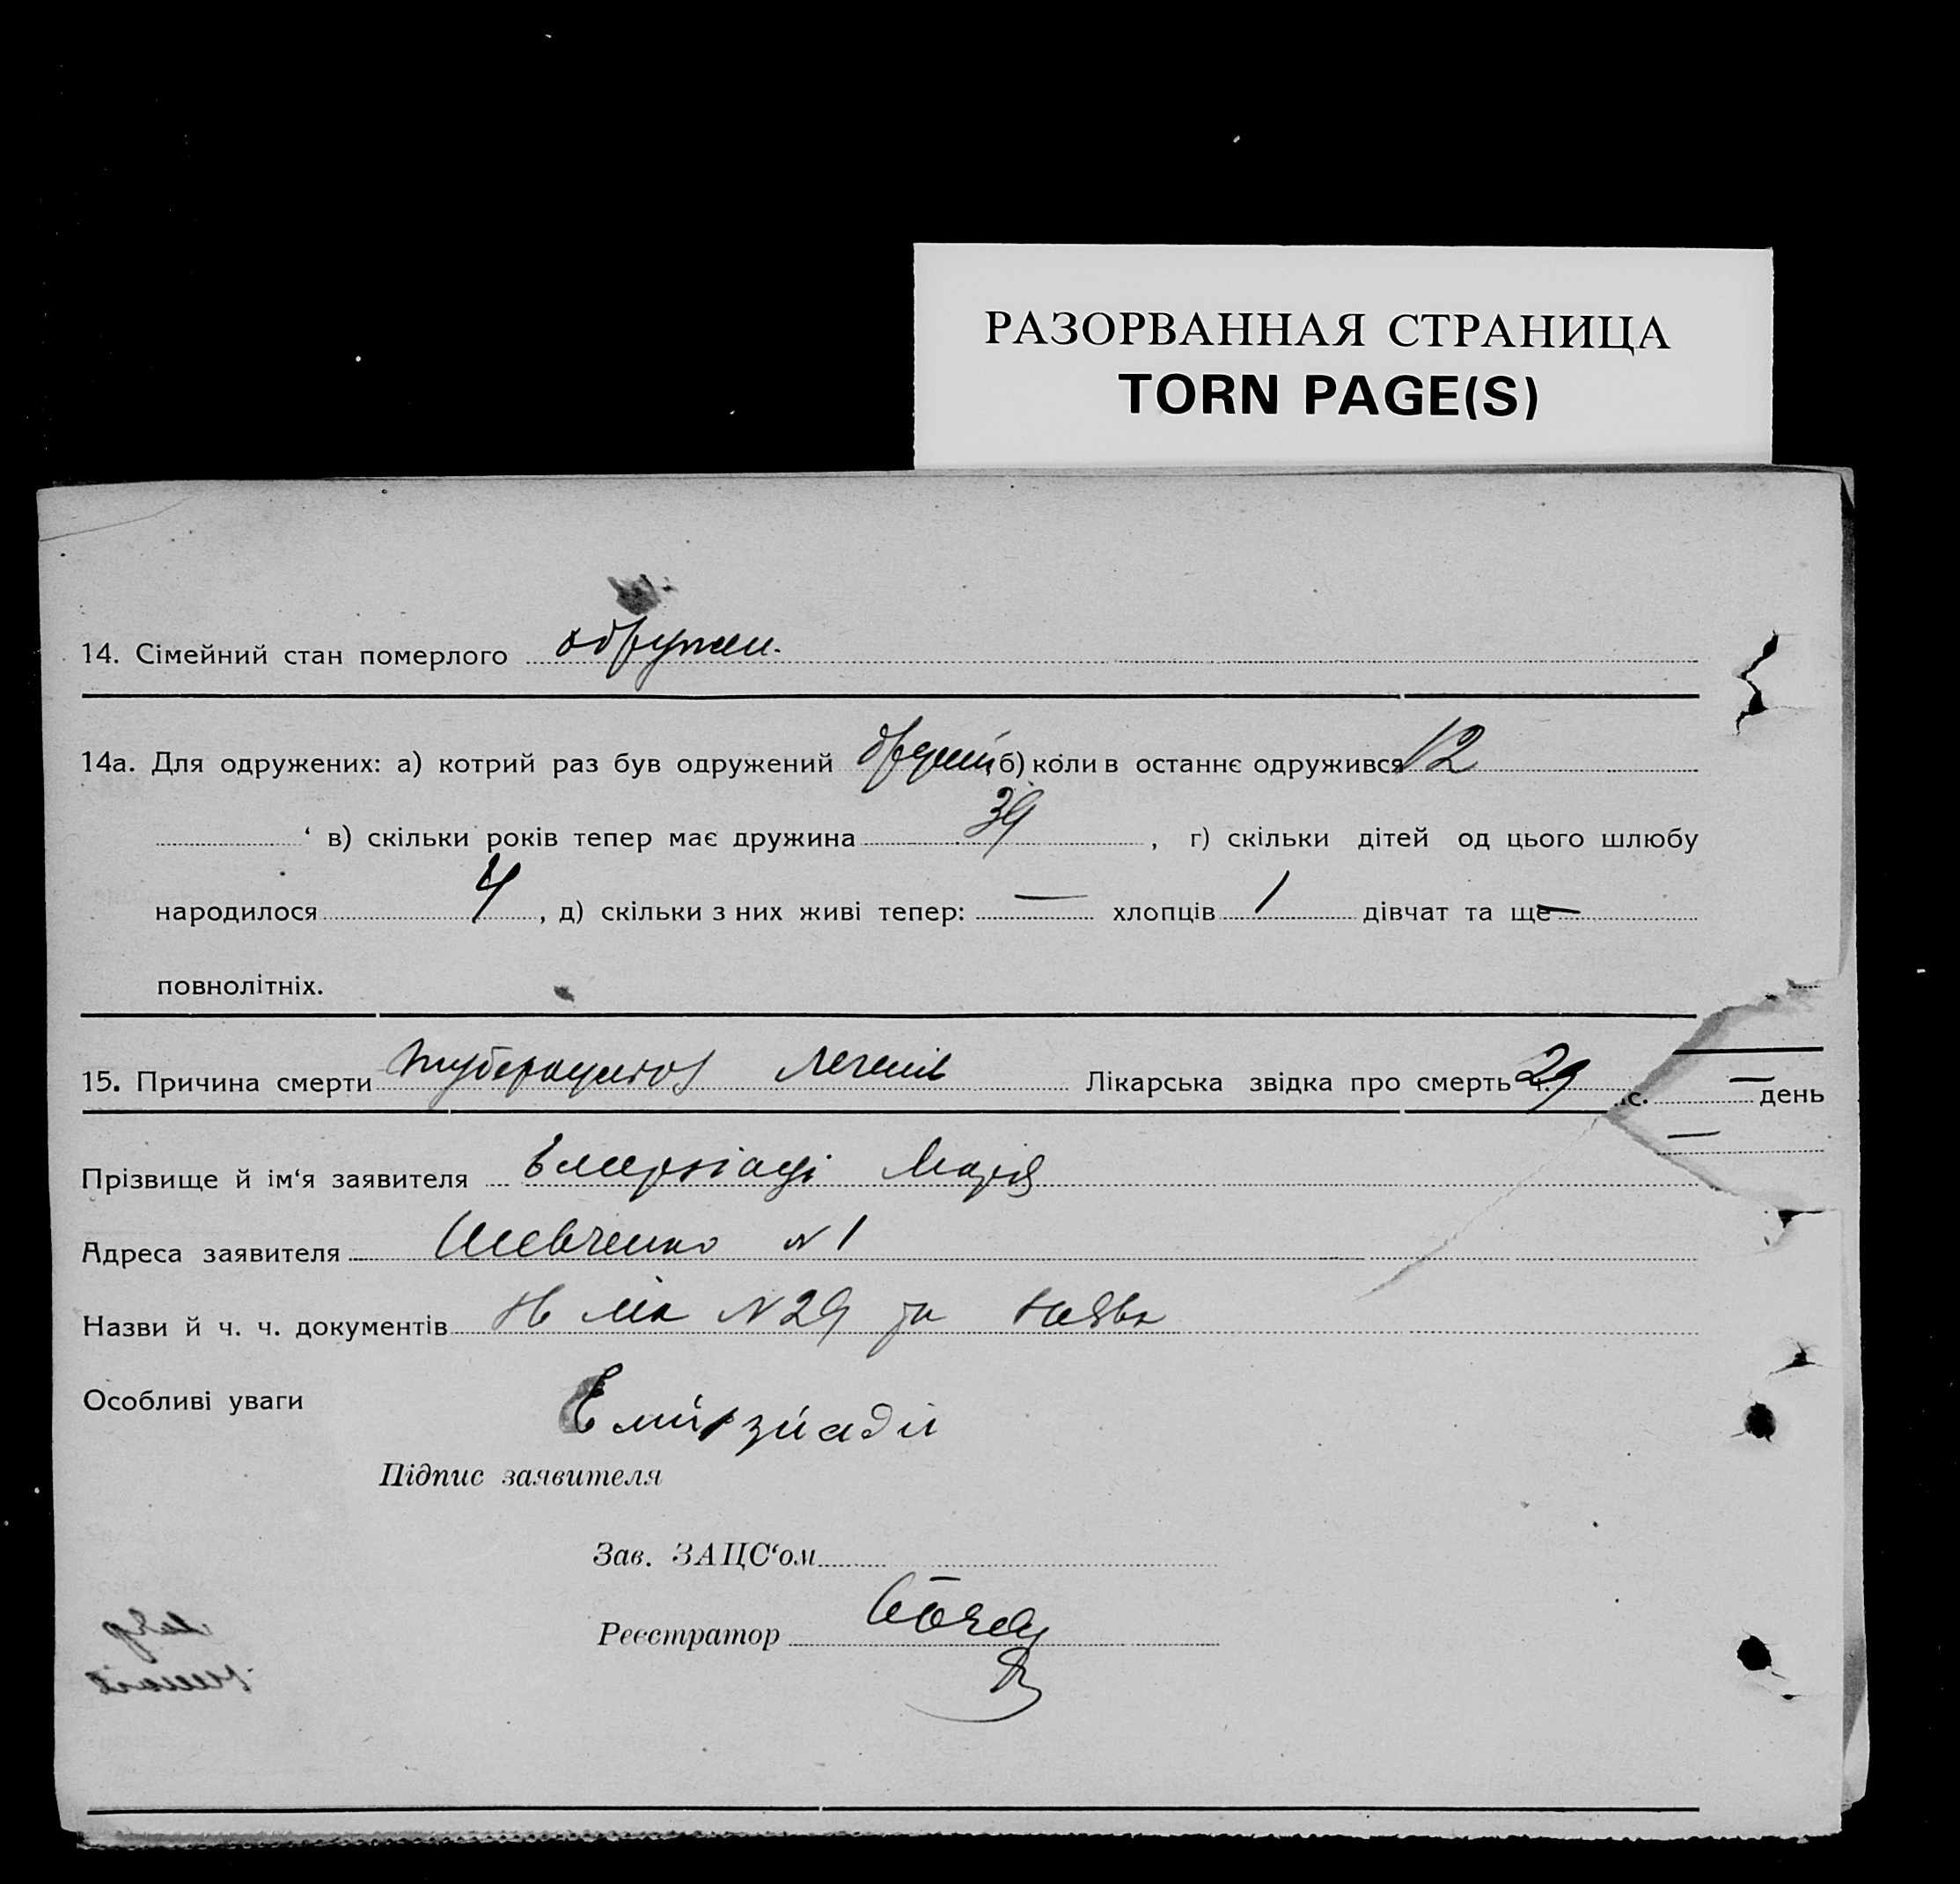 РАЗОРВАННАЯ СТРАНИЦА
TORN PAGE(S)
14. Сімейний стан померлого одружен.
14а. Для одружених: а) котрий раз був одружений другий б) коли в останнє одружився 12
‘ в) скільки років тепер має дружина 39, г) скільки дітей од цього шлюбу
народилося 4, д) скільки з них живі тепер: — хлопців 1 дівчат та ще —
повнолітніх.
15. Причина смерти туберкульоз легенів Лікарська звідка про смерть ч. 29
с. — день
—
Прізвище й ім‘я заявителя Марія
Адреса заявителя Шевченко № 1
Назви й ч. ч. документів № 29 та
Особливі уваги
Емірзиади
Підпис заявителя
Зав. ЗАЦС‘ом
Реєстратор